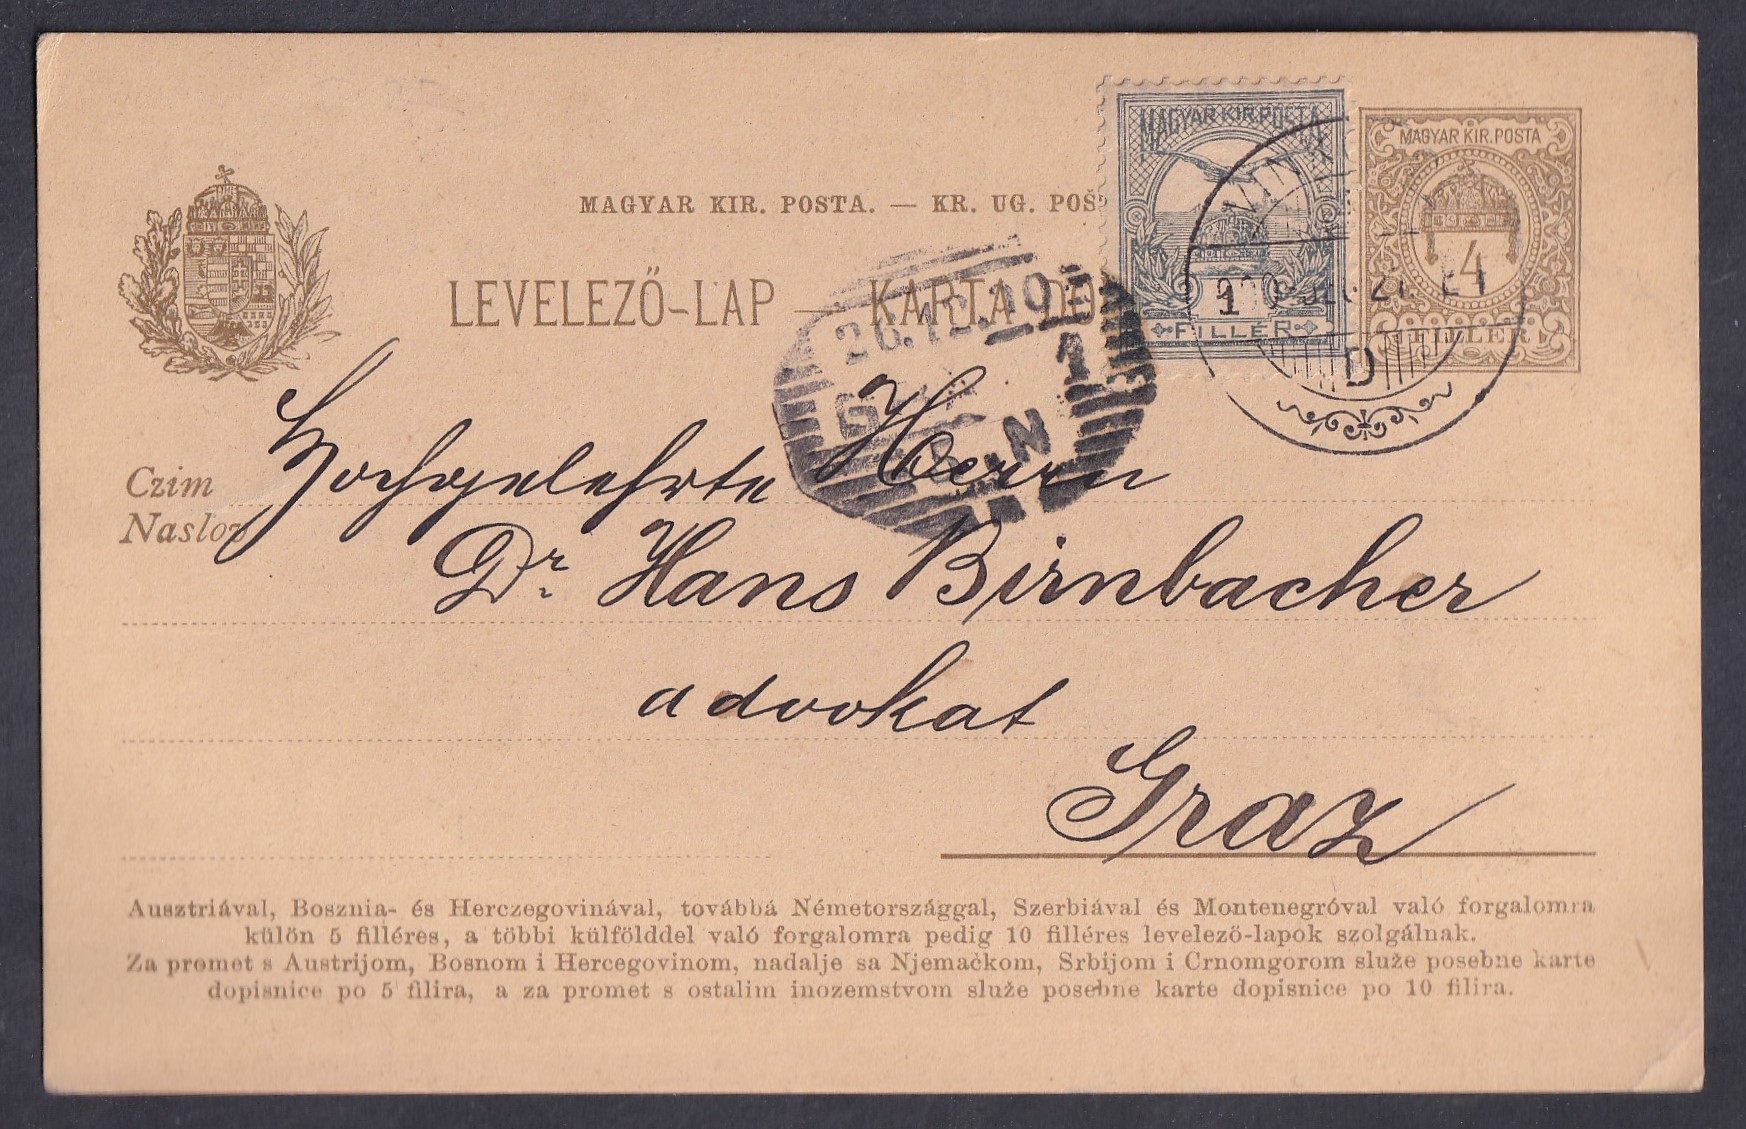 MAGYAR KIR. POSTA. — KR. UG. POŠ
LEVELEZŐ-LAP — KARTA DO
MAGYAR KIR. POSTA
1
FILLÉR
MAGYAR KIR. POSTA
4
FILLÉR
D
26.12.10
1
Czim
Naslov
Hochgelehrte Herrn
Dr. Hans Birnbacher
advokat
Graz
Ausztriával, Bosznia- és Herczegovinával, továbbá Németországgal, Szerbiával és Montenegróval való forgalomra
külön 5 filléres, a többi külfölddel való forgalomra pedig 10 filléres levelező-lapok szolgálnak.
Za promet s Austrijom, Bosnom i Hercegovinom, nadalje sa Njemačkom, Srbijom i Crnomgorom služe posebne karte
dopisnice po 5 filira, a za promet s ostalim inozemstvom služe posebne karte dopisnice po 10 filira.